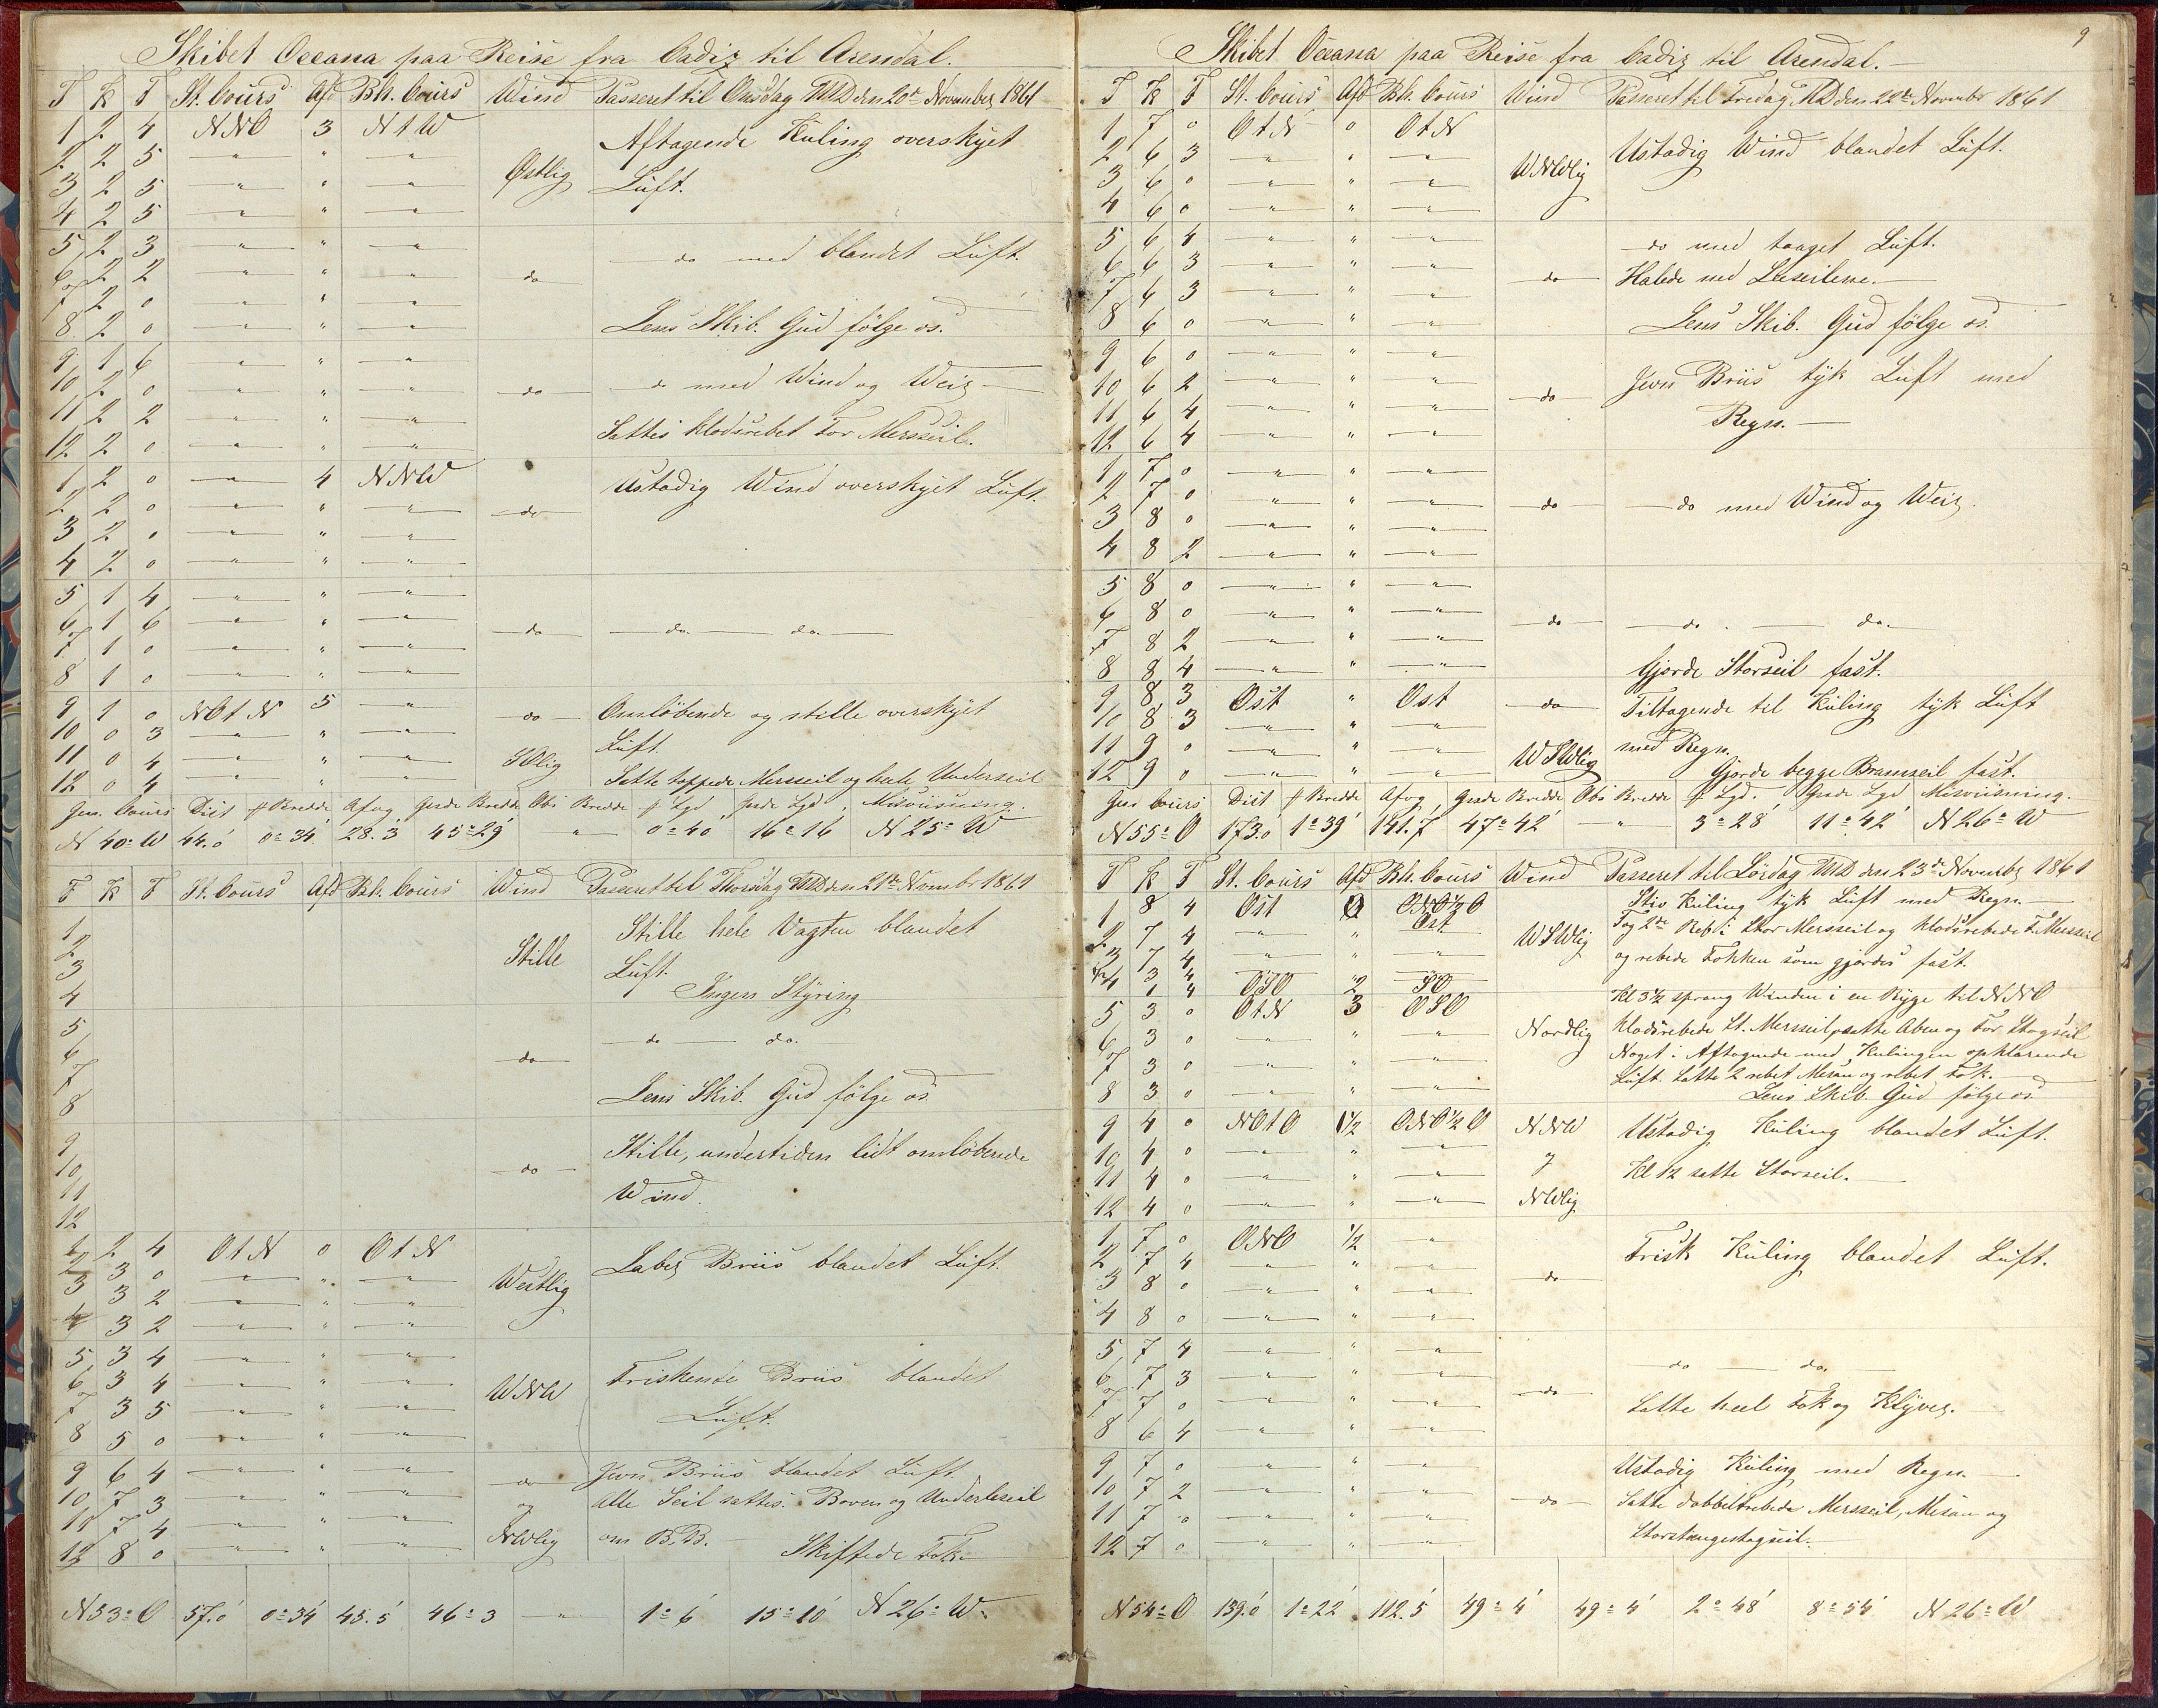 Skibet Oceana paa Reise fra Cadiz til Arendal.
T K T St. Cours Afd Bh. Cours Wind Passeret til Onsdag MD den 20de November 1861
1 2 4 NNO 3 N t W Aftagende Kuling overskyet
2 2 5 — " — " — " —
3 2 5 — " — " — " — Østlig Luft.
4 2 5 — " — " — " —
5 2 3 — " — " — " — — do med blandet Luft.
6 2 2 — " — " — " — do
7 2 0 — " — " — " —
8 2 0 — " — " — " — Lens Skib. Gud følge os.
9 1 6 — " — " — " —
10 2 0 — " — " — " — do — do med Wind og Weir
11 2 2 — " — " — " —
12 2 0 — " — " — " — Sattes Klodsrebet For Mersseil.
1 2 0 — " — 4 NNW Ustadig Wind overskyet Luft.
2 2 0 — " — " — " — do
3 2 0 — " — " — " —
4 2 0 — " — " — " —
5 1 4 — " — " — " —
6 1 6 — " — " — " — do — do — do —
7 1 0 — " — " — " —
8 1 0 — " — " — " —
9 1 0 NO t N 5 — " — do Omløbende og stille overskyet
10 0 3 — " — " — " — Luft.
11 0 4 — " — " — " — SOlig
12 0 4 — " — " — " — Satte toppede Mersseil og hale Underseil
Gen. Cours Dist ff Bredde Afvg Gisde Bredde Obs Bredde ff Lgd Gisde Lgd Misviisning.
N 40° W 44.0' 0° 34' 28.3' 45° 29' — " — 0° 40' 16° 16 N 25° W
T K T St. Cours Afd Bh. Cours Wind Passeret til Thorsdag MD den 21de Novembr 1861
1 Stille hele Vagten blandet
2 Stille
3 Luft.
4 Ingen Styring
5 — do — do.
6 do
7
8 Lens Skib. Gud følge os
9 Stille, undertiden lidt omløbende
10 do
11 Wind.
12
1 2 4 O t N 0 O t N
2 3 0 — " — " — " — Laber Briis blandet Luft.
3 3 2 — " — " — " — Westlig
4 3 2 — " — " — " —
5 3 4 — " — " — " —
6 3 4 — " — " — " — WNW Friskende Briis blandet
7 3 5 — " — " — " — Luft.
8 5 0 — " — " — " —
9 6 4 — " — " — " — do Jevn Briis blandet Luft.
10 7 3 — " — " — " — og Alle Seil sattes. Boven og Underleseil
11 7 4 — " — " — " — NWlig om B.B.
12 8 0 — " — " — " — Skiftede Fok.
N 53° O 57.0' 0° 34' 45.5' 46° 3 — " — 1° 6' 15° 10' N 26° W.
9
Skibet Oceana paa Reise fra Cadiz til Arendal.
T K T St. Cours Afd Bh. Cours Wind Passeret til Fredag MD den 22de Novembr 1861
1 7 0 O t N 0 O t N
2 6 3 — " — " — " — Ustadig Wind blandet Luft.
3 6 0 — " — " — " — WNWlig
4 6 0 — " — " — " —
5 6 4 — " — " — " — — do med taaget Luft.
6 6 3 — " — " — " — do Halede ned Læseilene.
7 6 3 — " — " — " —
8 6 0 — " — " — " — Lens Skib. Gud følge os.
9 6 0 — " — " — " —
10 6 2 — " — " — " — do Jevn Briis tyk Luft med
11 6 4 — " — " — " — Regn.
12 6 4 — " — " — " —
1 7 0 — " — " — " —
2 7 0 — " — " — " — do — do med Wind og Weir.
3 8 0 — " — " — " —
4 8 2 — " — " — " —
5 8 0 — " — " — " —
6 8 0 — " — " — " — do — do. — do.
7 8 2 — " — " — " —
8 8 4 — " — " — " — Gjorde Storseil fast.
9 8 3 Ost " Ost do Tiltagende til Kuling tyk Luft
10 8 3 — " — " — " —
11 9 0 — " — " — " — WSWlig med Regn.
12 9 0 — " — " — " — Gjorde begge Bramseil fast.
Gen Cours Dist ff Bredde Afvg Gisde Bredde Obs Bredde ff Lgd. Gisde Lgd Misviisning.
N 55° O 173.0' 1° 39' 141.7 47° 42' — " — 3° 28' 11° 42' N 26° W
T K T St. Cours Afd Bh. Cours Wind Passeret til Lørdag MD den 23de Novembr 1861
1 8 4 Ost 0 ONO½O Stiv Kuling tyk Luft med Regn.
2 7 4 — " — " Ost WSWlig Tog 2de Reb i Stor Mersseil og klodsrebede F. Mersseil
3 7 4 — " — " — " — og rebede Fokken som gjordes fast.
4 3 4 OSO 2 SO
1 4 Kl 3½ sprang Winden i en Byge til NNO
5 3 0 O t N 3 OSO
6 3 0 — " — " — " — Nordlig Klodsrebede St. Mersseil satte Aben og For Stagseil
7 3 0 — " — " — " — Noget i Aftagende med Kulingen opklarende
8 3 0 — " — " — " — Luft. Satte 2 rebet Mesan og rebet Fok.
Lens Skib Gud følge os
9 4 0 NO t O 1½ ONO½O NNW Ustadig Kuling blandet Luft.
10 4 0 — " — " — " — og
11 4 0 — " — " — " — Kl 12 satte Storseil.
12 4 0 — " — " — " — NWlig
1 7 0 ONO ½ — " —
2 7 4 — " — " — " — Frisk Kuling blandet Luft.
3 8 0 — " — " — " — do
4 8 0 — " — " — " —
5 7 4 — " — " — " —
6 7 3 — " — " — " — — do — do.
7 7 0 — " — " — " — do
8 6 4 — " — " — " — Satte heel Fok og Klyver.
9 7 0 — " — " — " — Ustadig Kuling med Regn.
10 7 2 — " — " — " — do Satte dobbeltrebede Mersseil, Mesan og
11 7 0 — " — " — " — Storstængestagseil.
12 7 0 — " — " — " —
N 54° O 139.0' 1° 22' 112.5' 49° 4' 49° 4' 2° 48' 8° 54' N 26° W